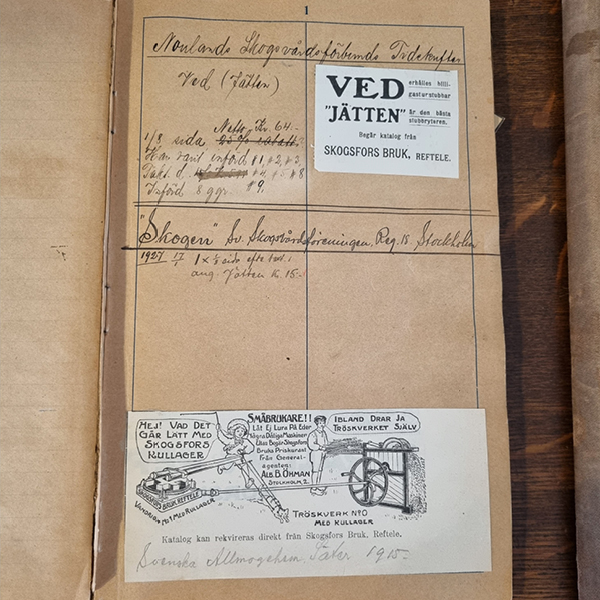 1
Norrlands Skogsvårdsförbunds Tidskrifter
Ved (Jätten)
Netto Kr 64.-
1/8 sida 25% rabatt
införd #1, #2, #3,
#4, #5 #8
Införd 8 ggr. #9,
VED erhålles billi-
gast ur stubbar
"JÄTTEN" är den bästa
stubbrytaren.
Begär katalog från
SKOGSFORS BRUK, REFTELE.
"Skogen" Sv. Skogsvårdsföreningen, Reg. 15 Stockholm
1927 17/1 1 x 1/8 sida efter
ang. Jätten K. 15.-
HEJ! VAD DET
GÅR LÄTT MED
SKOGSFORS
KULLAGER
SMÅBRUKARE!!
Låt Ej Lura På Eder
Några Dåliga Maskiner
Utan Begär Skogsfors
Bruks Priskurant
Från General-
agenten:
ALB. B. ÖHMAN
STOCKHOLM, 2.
IBLAND DRAR JA
TRÖSKVERKET SJÄLV
SKOGSFORS BRUK, REFTELE
VANDRING No 1 MED KULLAGER
TRÖSKVERK No 0
MED KULLAGER
Katalog kan rekvireras direkt från Skogsfors Bruk, Reftele.
Svenska Allmogehem, Säter 1915.-